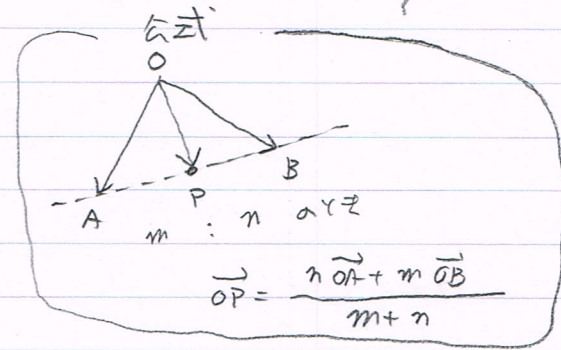 公式
O
A P B
m : n のとき
$\overrightarrow{OP} = \frac{n\overrightarrow{OA} + m\overrightarrow{OB}}{m+n}$